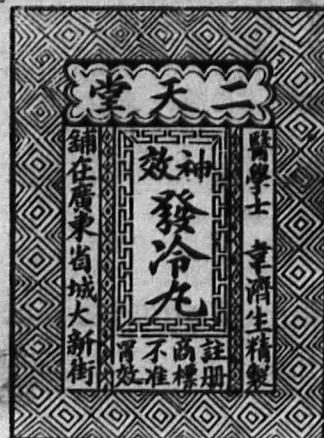 二天堂
醫學士 韋濟生精製
神效
發冷丸
註册
商標
不准
冒效
舖在廣東省城大新街